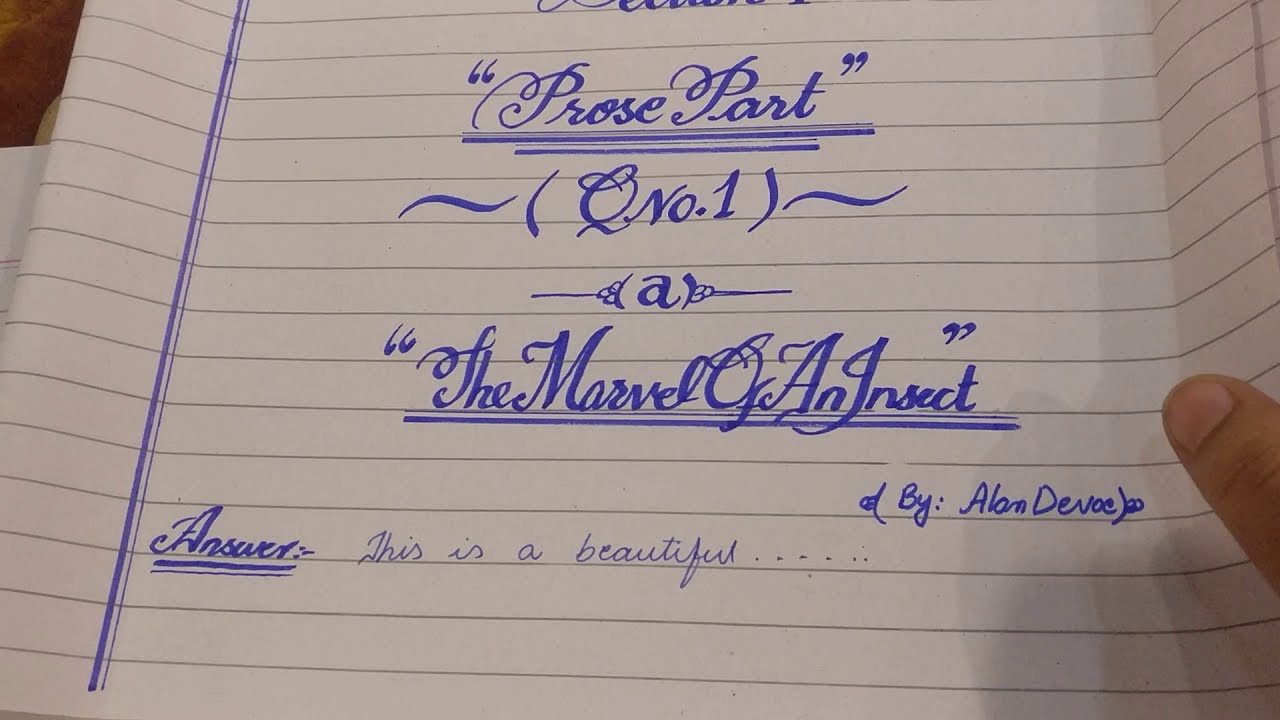 Section 1
“Prose Part”
~( Q.No.1 )~
(a)
“The Marvel Of An Insect”
( By: Alan Devoe)
Answer:- This is a beautiful . . . . . . .